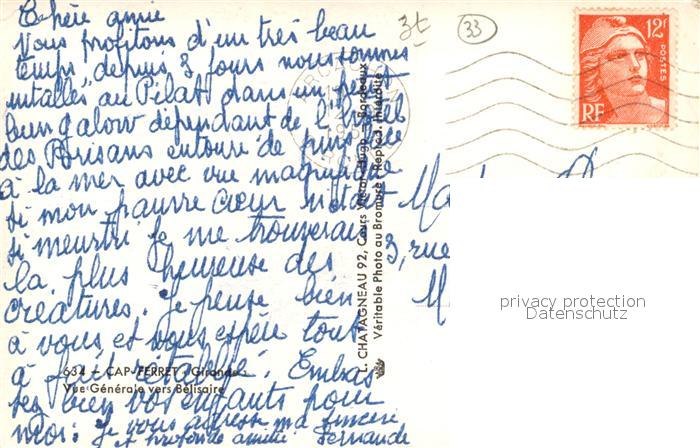 Chère amie
Vous profitons d'un très beau
temps, depuis 3 jours nous sommes
installés au Pilat dans un petit
bungalow dépendant de l'hôtel
des Brisans entouré de pins face
à la mer avec vue magnifique
si mon pauvre cœur n'était
si meurtri je me trouverais
la plus heureuse des
créatures. Je pense bien
à vous et vous espère tout
à fait rétablie. Embras
sez bien vos enfants pour
moi. Je vous adresse ma sincère
et profonde amitié Fernande
634 - CAP-FERRET (Gironde)
Vue Générale vers Bélisaire
L. CHATAGNEAU 92, Cours Victor-Hugo - Bordeaux
Véritable Photo au Bromure (Reprod. interdite)
3t
33
12F
POSTES
RF
3, rue
privacy protection
Datenschutz